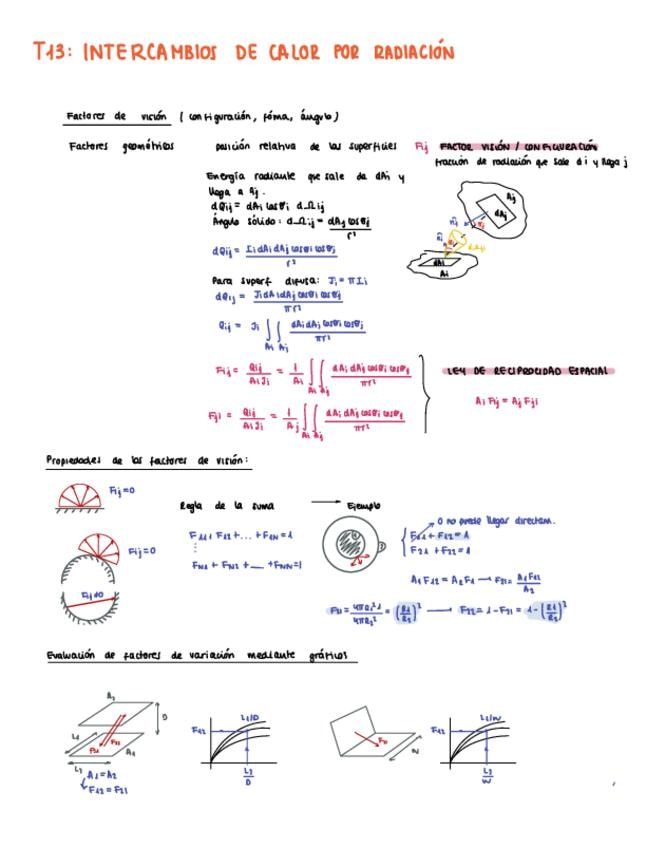 T13: INTERCAMBIOS DE CALOR POR RADIACIÓN
Factores de visión (configuración, fóma, ángulo)
Factores geométricos posición relativa de las superficies Fij FACTOR VISIÓN / CONFIGURACIÓN
fracción de radiación que sale d i y llega j
Energía radiante que sale de dAi y
llega a Aj.
dQij = dAi cosθi dΩij
Ángulo sólido: dΩij = dAj cosθj / r²
dQij = Ii dAi dAj cosθi cosθj / r²
Para superf difusa: Ji = πIi
dQij = Ji dAi dAj cosθi cosθj / πr²
Qij = Ji ∫Ai ∫Aj dAi dAj cosθi cosθj / πr²
Fij = Qij / AiJi = 1/Ai ∫Ai ∫Aj dAi dAj cosθi cosθj / πr²
LEY DE RECIPROCIDAD ESPACIAL
Ai Fij = Aj Fji
Fji = Qij / AiJi = 1/Aj ∫Ai ∫Aj dAi dAj cosθi cosθj / πr²
Aj
dAj
dAi
Ai
Propiedades de los factores de visión:
Fij=0
Regla de la suma → Ejemplo
F11+F12+...+F1N=1
⋮
FN1+FN2+...+FNN=1
Fij=0
Fij≠0
0 no puede llegar directam.
F11+F12=1
F21+F22=1
A1F12=A2F21 → F21=A1F12/A2
F21=4πR1²1/4πR2²=(R1/R2)² → F22=1-F21=1-(R1/R2)²
Evaluación de factores de variación mediante gráficos
A2
D
L1
F21
F12
A1
L2
A1=A2
F12=F21
F12
L1/D
L2/D
W
F12
L1/W
L2/W